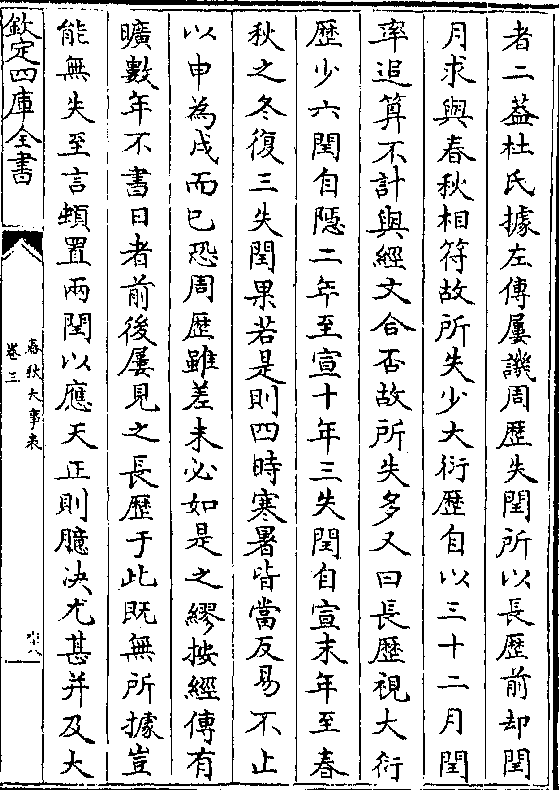 者二葢杜氏據左傳屢譏周歴失閏所以長歴前却閏
月求與春秋相符故所失少大衍歴自以三十二月閏
率追算不計與經文合否故所失多又曰長歴視大衍
歴少六閏自隱二年至宣十年三失閏自宣末年至春
秋之冬復三失閏果若是則四時寒暑皆當反易不止
以申為戌而已恐周歴雖差未必如是之繆按經傳有
曠數年不書日者前後屢見之長歴于此既無所據豈
能無失至言頓置兩閏以應天正則臆决尤甚并及大
欽定四庫全書
春秋大事表
卷三